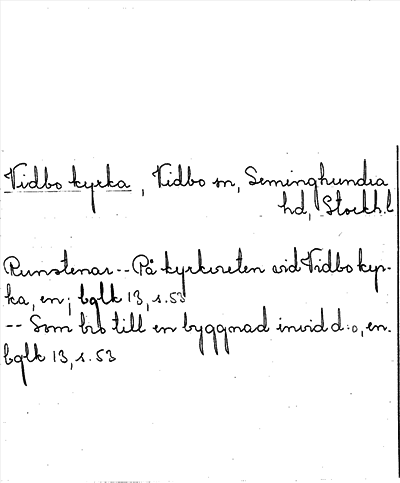 Vidbo kyrka, Vidbo sn, Seminghundra
hd, Stockh.l
Runstenar -- På kyrkvreten vid Vidbo kyr-
ka, en; bglk 13, s. 53
-- Som bro till en byggnad invid d:o, en.
bglk 13, s. 53